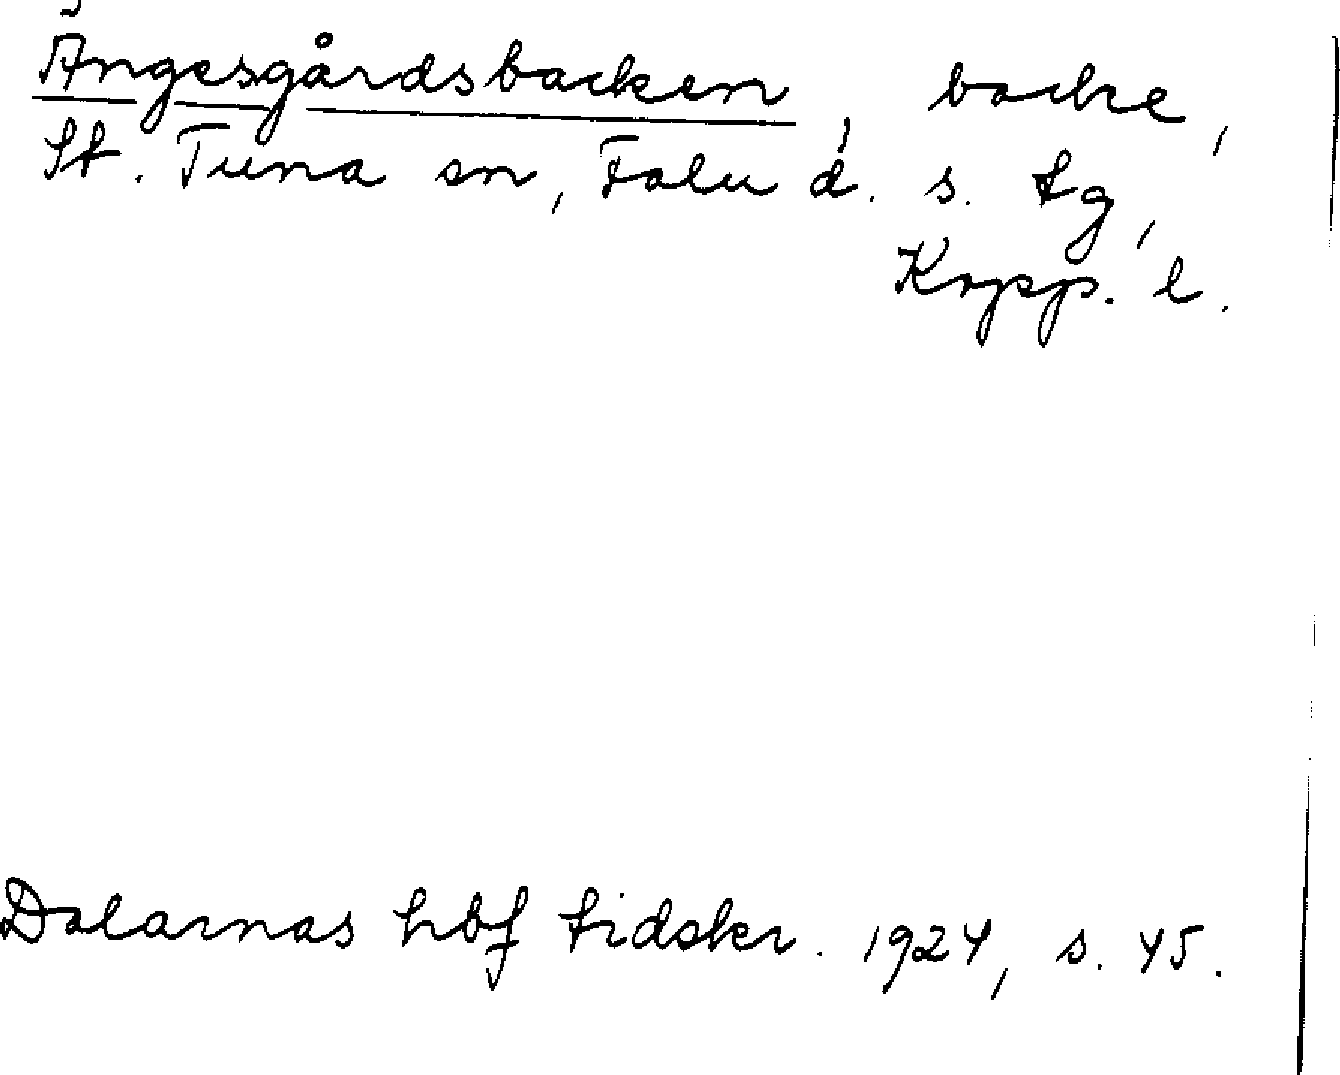 Ängesgårdsbacken, backe,
St. Tuna sn, Falu d. s. tg,
Kopp. l.
Dalarnas hbf tidskr. 1924, s. 45.